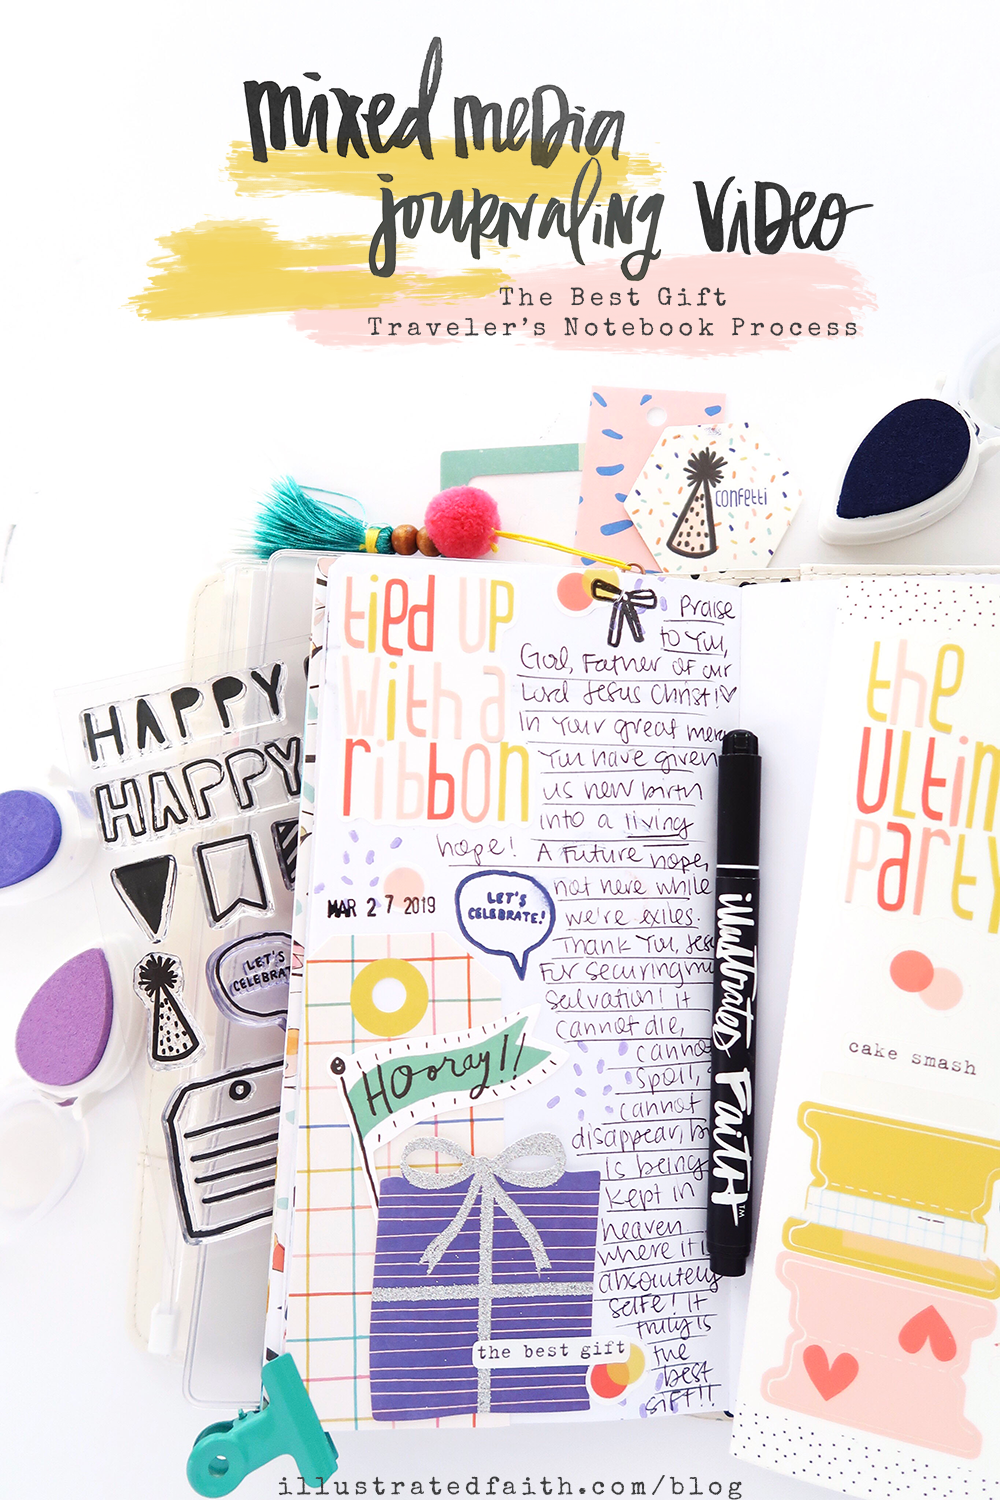 mixed media
journaling video
The Best Gift
Traveler's Notebook Process
confetti
tied up
with a
ribbon
Praise
to You,
God, Father of our
Lord Jesus Christ!♡
In Your great
You have given
us new birth
into a living
hope! A future hope,
not here while
we're exiles.
Thank You,
For securing
salvation! It
cannot die,
cannot
spoil,
cannot
disappear,
is being
kept in
heaven
where it
absolutely
safe! It
truly is
the
best
gift!!
MAR 27 2019
LET'S
CELEBRATE!
Hooray!!
the best gift
HAPPY
HAPPY
LET'S
CELEBRATE
illustrated Faith™
the
party
cake smash
illustratedfaith.com/blog